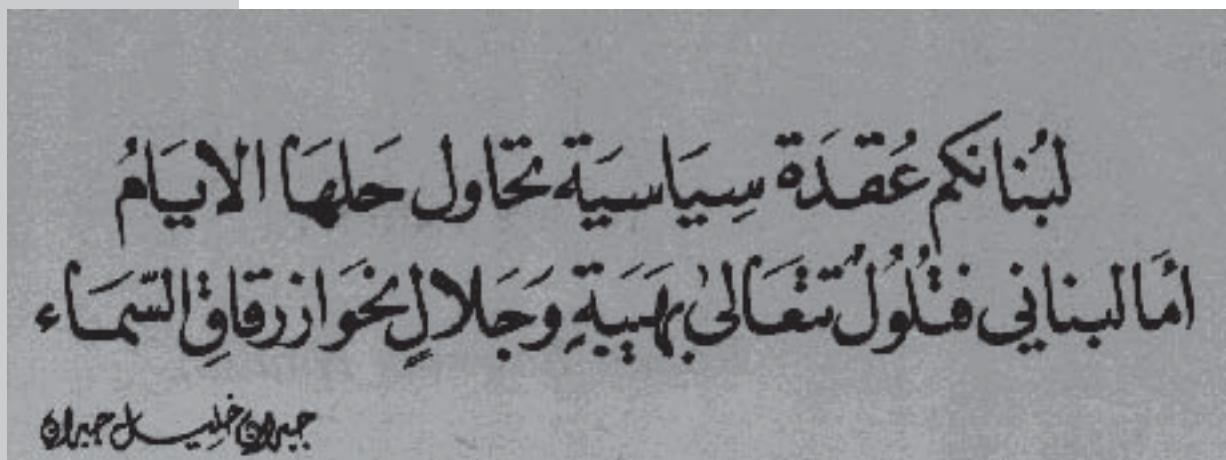 لبُنانكم عُقدَة سِيَاسيَة تحَاول حَلهَا الايَامُ
امَا لبناني فتُلُولٌ تتعَالىٰ بهَيبَةٍ وَجَلالٍ نحَوَ ازرقاقِ السّمَاء
جبران خليل جبران